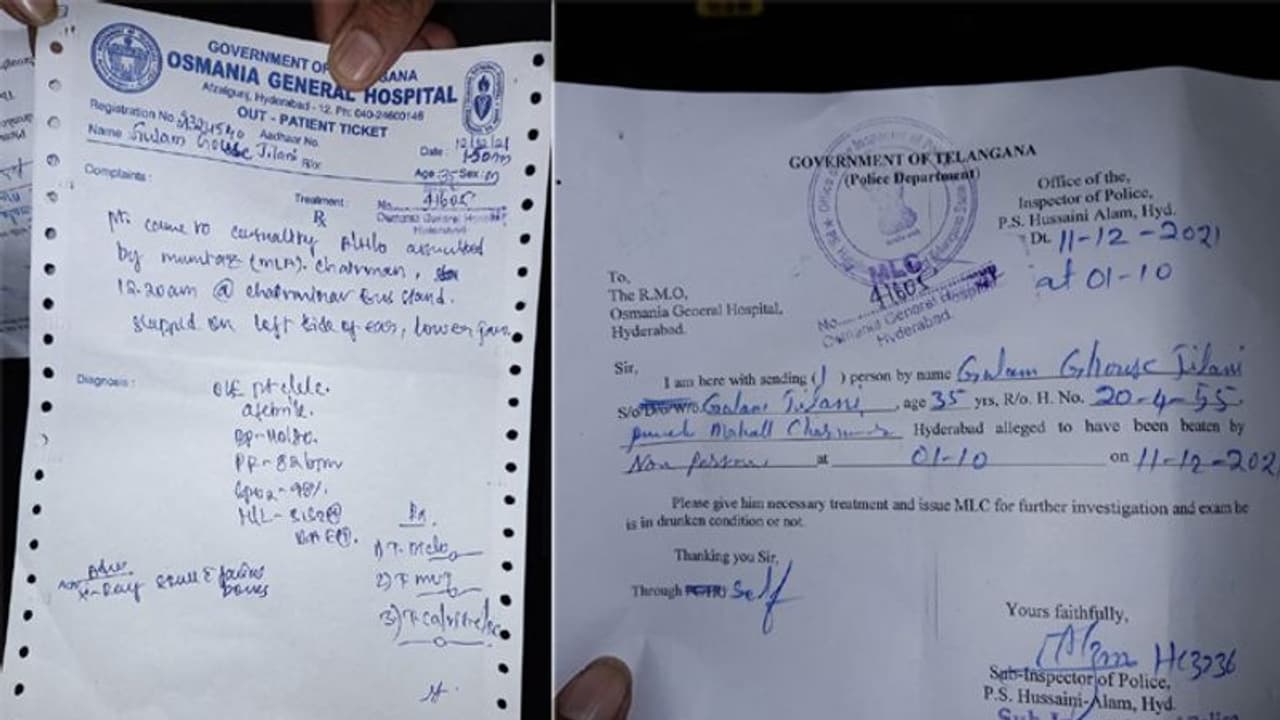 GOVERNMENT OF TELANGANA
OSMANIA GENERAL HOSPITAL
Afzalgunj, Hyderabad - 12. Ph: 040-24600146
OUT - PATIENT TICKET
Registration No.
Aadhaar No.
Name Gulam Gouse Jilani R/o:
Date : 12/12/21
1:50am
Age : 35 Sex : M
Complaints :
Treatment :
No. 41605
Osmania General Hospital
Hyderabad
Rx
Pt. came to casualty Alh/o assaulted
by mumtaz (MLA). Charminar,
12.20am @ charminar Bus stand.
slapped on left side of ear, lower jaw
Diagnosis :
O/E pt c/c/c.
afebrile.
BP-110/80.
PR-82bpm
Spo2-98%.
H/L - S1S2⊕
BAE⊕.
Rx
1) T. Diclo
2) T. mvt
3) T.
Adv.
X-Ray skull & facial
bones
GOVERNMENT OF TELANGANA
(Police Department)
Office of the,
Inspector of Police,
P.S. Hussaini Alam, Hyd.
Dt. 11-12-2021
at 01-10
To,
The R.M.O,
Osmania General Hospital,
Hyderabad.
MLC
No. 41605
Osmania General Hospital
Hyderabad.
Sir,
I am here with sending (1) person by name Gulam Ghouse Jilani
S/o D/o W/o. Gulam Jilani, age 35 yrs, R/o. H. No. 20-4-55.
Mahall Hyderabad alleged to have been beaten by
person at 01-10 on 11-12-202
Please give him necessary treatment and issue MLC for further investigation and exam he
is in drunken condition or not.
Thanking you Sir,
Through Self
Yours faithfully,
HC3736
Sub-Inspector of Police,
P.S. Hussaini-Alam, Hyd.